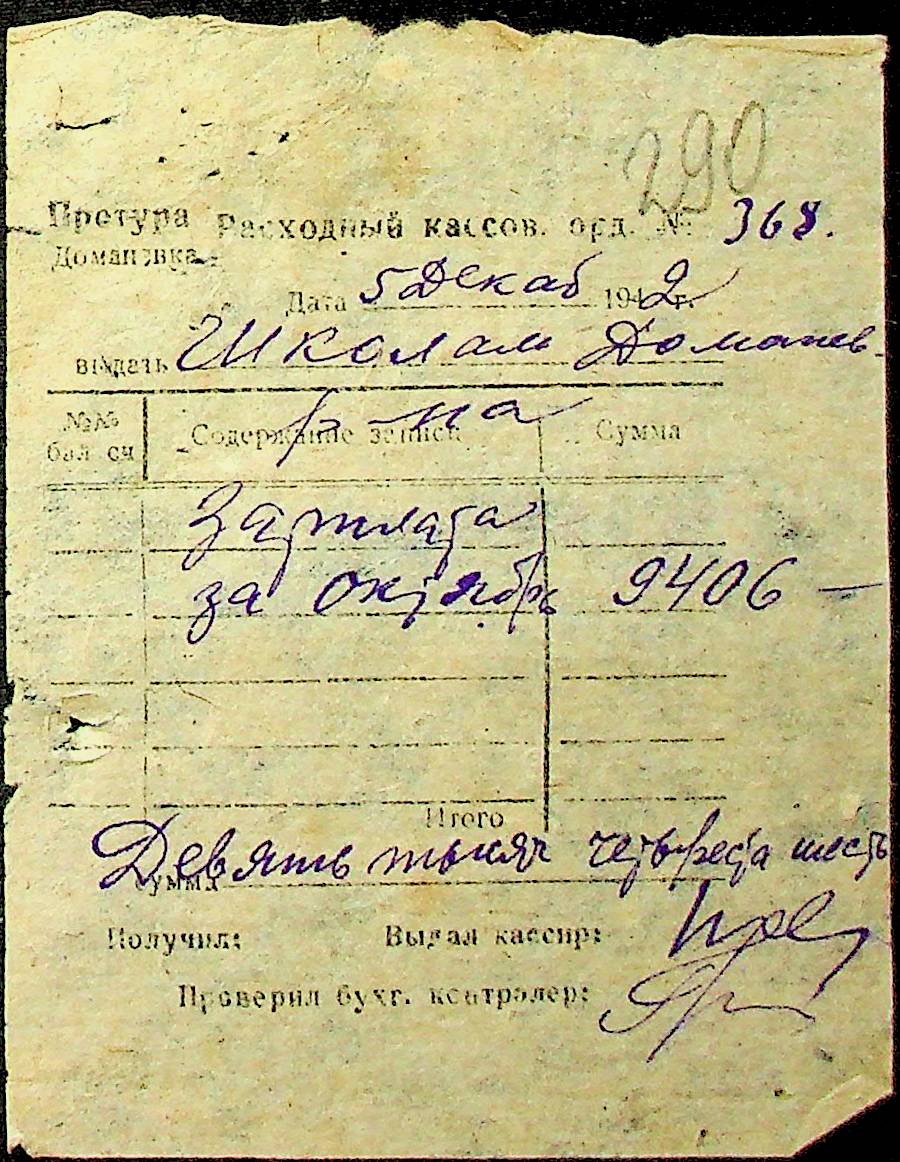 290
Претура Расходный кассов. орд. № 368.
Доманевка
Дата 5 Декаб 1942 г.
выдать Школам Доманев.
р-на
№№ бал сч Содержание записи Сумма
Зарплата
за октябрь 9406 —
Итого
Девять тысяч четыреста шесть
Сумма
Получил: Выдал кассир:
Проверил бухг. контролер: